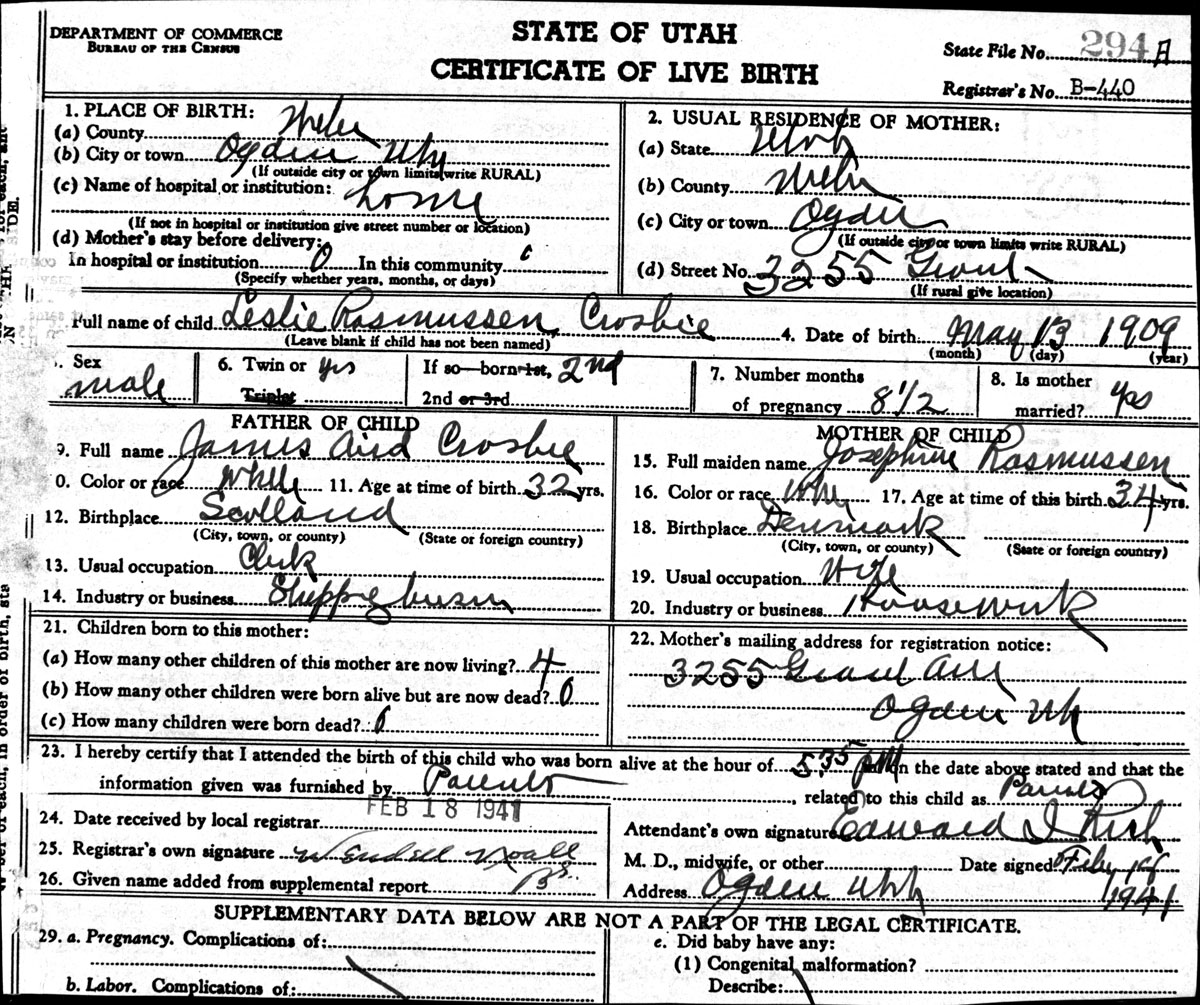 DEPARTMENT OF COMMERCE
BUREAU OF THE CENSUS
STATE OF UTAH
CERTIFICATE OF LIVE BIRTH
State File No. 294 A
Registrar's No. B-440
1. PLACE OF BIRTH:
(a) County
(b) City or town Ogden
(If outside city or town limits write RURAL)
(c) Name of hospital or institution:
(If not in hospital or institution give street number or location)
(d) Mother's stay before delivery:
In hospital or institution 0 In this community
(Specify whether years, months, or days)
2. USUAL RESIDENCE OF MOTHER:
(a) State Utah
(b) County
(c) City or town Ogden
(If outside city or town limits write RURAL)
(d) Street No. 3255 Grant
(If rural give location)
Full name of child Leslie Rasmussen Crosbie 4. Date of birth May 13 1909
(Leave blank if child has not been named) (month) (day) (year)
Sex male
6. Twin or yes
Triplet
If so—born 1st, 2nd
2nd or 3rd
7. Number months
of pregnancy 8 1/2
8. Is mother
married? yes
FATHER OF CHILD
9. Full name James Aird Crosbie
0. Color or race White 11. Age at time of birth 32 yrs.
12. Birthplace Scotland
(City, town, or county) (State or foreign country)
13. Usual occupation Clerk
14. Industry or business
MOTHER OF CHILD
15. Full maiden name Josephine Rasmussen
16. Color or race 17. Age at time of this birth 34 yrs.
18. Birthplace Denmark
(City, town, or county) (State or foreign country)
19. Usual occupation Wife
20. Industry or business Housework
21. Children born to this mother:
(a) How many other children of this mother are now living? 4
(b) How many other children were born alive but are now dead? 0
(c) How many children were born dead? 0
22. Mother's mailing address for registration notice:
3255 Grant Ave
Ogden
23. I hereby certify that I attended the birth of this child who was born alive at the hour of 5:35 PM on the date above stated and that the
information given was furnished by Parents, related to this child as Parents
24. Date received by local registrar FEB 18 1941
25. Registrar's own signature Wendell Noall
26. Given name added from supplemental report
Attendant's own signature Edward I Rich
M. D., midwife, or other Date signed Feby
Address Ogden Utah 1941
SUPPLEMENTARY DATA BELOW ARE NOT A PART OF THE LEGAL CERTIFICATE.
29. a. Pregnancy. Complications of:
b. Labor. Complications of:
e. Did baby have any:
(1) Congenital malformation?
Describe: